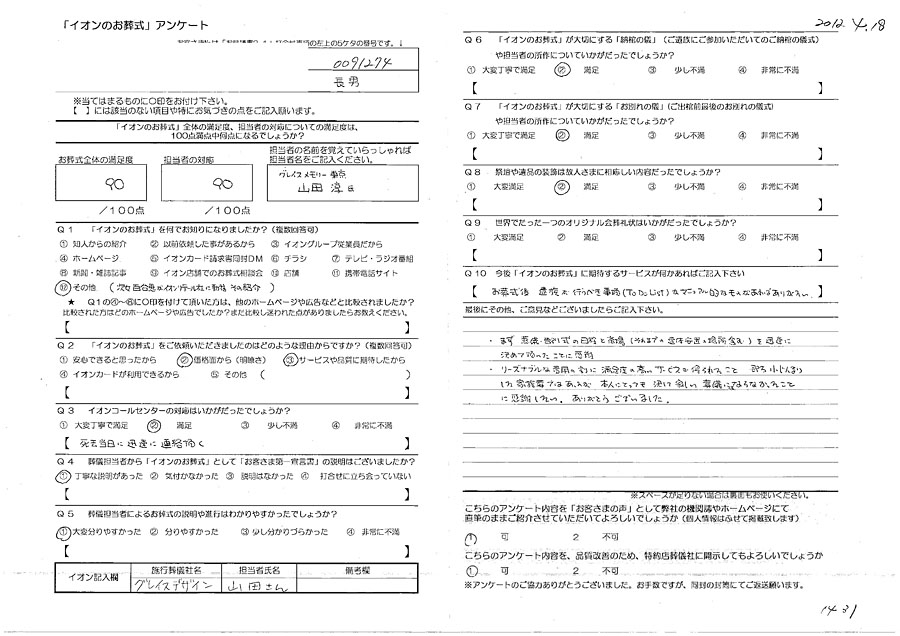 「イオンのお葬式」アンケート
の左上の5ケタの番号です。
0091274
長男
※当てはまるものに〇印をお付け下さい。
【 】には該当のない項目や特にお気づきの点をご記入願います。
「イオンのお葬式」全体の満足度、担当者の対応についての満足度は、
100点満点中何点になるでしょうか？
お葬式全体の満足度
担当者の対応
担当者の名前を覚えていらっしゃれば
担当者名をご記入ください。
90
90
グレイスメモリー東京
山田 淳 氏
／100点
／100点
Q1 「イオンのお葬式」を何でお知りになりましたか？（複数回答可）
① 知人からの紹介 ② 以前依頼した事があるから ③ イオングループ従業員だから
④ ホームページ ⑤ イオンカード請求書同封DM ⑥ チラシ ⑦ テレビ・ラジオ番組
⑧ 新聞・雑誌記事 ⑨ イオン店舗でのお葬式相談会 ⑩ 店舗 ⑪ 携帯電話サイト
⑫ その他 （ 紹介 ）
★ Q1の④〜⑥に〇印を付けて頂いた方は、他のホームページや広告などと比較されましたか？
比較された方はどのホームページや広告でしたか？また比較し迷われた点がありましたらお教えください。
【 】
Q2 「イオンのお葬式」をご依頼いただきましたのはどのような理由からですか？（複数回答可）
① 安心できると思ったから ② 価格面から（明瞭さ） ③ サービスや品質に期待したから
④ イオンカードが利用できるから ⑤ その他 （ ）
【 】
Q3 イオンコールセンターの対応はいかがだったでしょうか？
① 大変丁寧で満足 ② 満足 ③ 少し不満 ④ 非常に不満
【 死去当日に迅速に連絡頂く 】
Q4 葬儀担当者から「イオンのお葬式」として「お客さま第一宣言書」の説明はございましたか？
① 丁寧な説明があった ② 気付かなかった ③ 説明はなかった ④ 打合せに立ち会っていない
【 】
Q5 葬儀担当者によるお葬式の説明や進行はわかりやすかったでしょうか？
① 大変分りやすかった ② 分りやすかった ③ 少し分かりづらかった ④ 非常に不満
【 】
イオン記入欄
施行葬儀社名
担当者氏名
備考欄
グレイスデザイン
山田さん
2012 4.18
Q6 「イオンのお葬式」が大切にする「納棺の儀」（ご遺族にご参加いただいてのご納棺の儀式）
や担当者の所作についていかがだったでしょうか？
① 大変丁寧で満足 ② 満足 ③ 少し不満 ④ 非常に不満
【 】
Q7 「イオンのお葬式」が大切にする「お別れの儀」（ご出棺前最後のお別れの儀式）
や担当者の所作についていかがだったでしょうか？
① 大変丁寧で満足 ② 満足 ③ 少し不満 ④ 非常に不満
【 】
Q8 祭壇や遺品の装飾は故人さまに相応しい内容だったでしょうか？
① 大変満足 ② 満足 ③ 少し不満 ④ 非常に不満
【 】
Q9 世界でたった一つのオリジナル会葬礼状はいかがだったでしょうか？
① 大変満足 ② 満足 ③ 少し不満 ④ 非常に不満
【 】
Q10 今後「イオンのお葬式」に期待するサービスが何かあればご記入下さい
【 お葬式後 遺族が行うべき事項(To Do List)をマニュアル的なものがあればありがたい 】
最後にその他、ご意見などございましたらご記入下さい。
・まず 葬儀・告別式の日程と斎場（それまでの遺体安置の場所含む）も迅速に
決めて頂ったことに感謝
・リーズナブルな費用の割に満足度の高いサービスを得られたこと
した家族葬ではあるが 本人にとっても 決して 葬儀に ことに
に感謝したい。ありがとうございました。
※スペースが足りない場合は裏面もお使いください。
こちらのアンケート内容を「お客さまの声」として弊社の機関誌やホームページにて
直筆のままご紹介させていただいてよろしいでしょうか（個人情報はふせて掲載致します）
1 可 2 不可
こちらのアンケート内容を、品質改善のため、特約店葬儀社に開示してもよろしいでしょうか
① 可 2 不可
※アンケートのご協力ありがとうございました。お手数ですが、同封の封筒にてご返送願います。
1431